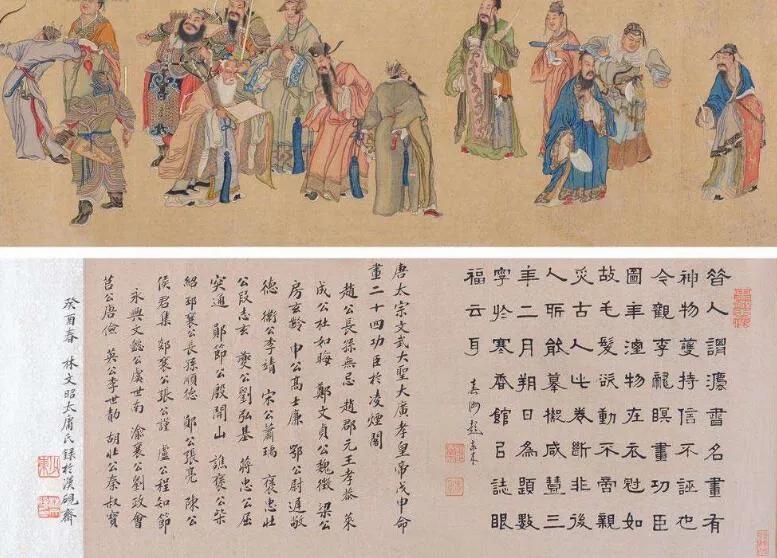 昔人謂灋書名畫有
神物護持信不誣也
今觀李龍瞑畫功臣
圖年湮物在衣冠如
故毛髮欲動不啻親
炙古人此卷斷非後
人所能摹擬咸豐三
年二月朔日為題數
字於寒香館以誌眼
福云耳
唐太宗文武大聖大廣孝皇帝戊申命
畫二十四功臣於凌煙閣
趙公長孫無忌 趙郡元王孝恭 萊
成公杜如晦 鄭文貞公魏徵 梁公
房玄齡 申公高士廉 鄂公尉遲敬
德 衛公李靖 宋公蕭瑀 褒忠壯
公段志玄 夔公劉弘基 蔣忠公屈
突通 鄖節公殷開山 譙襄公柴
紹 邳襄公長孫順德 鄖公張亮 陳公
侯君集 郯襄公張公謹 盧公程知節
永興文懿公虞世南 渝襄公劉政會
莒公唐儉 英公李世勣 胡壯公秦叔寶
癸酉春 林文昭太庸氏錄於漢硯齋